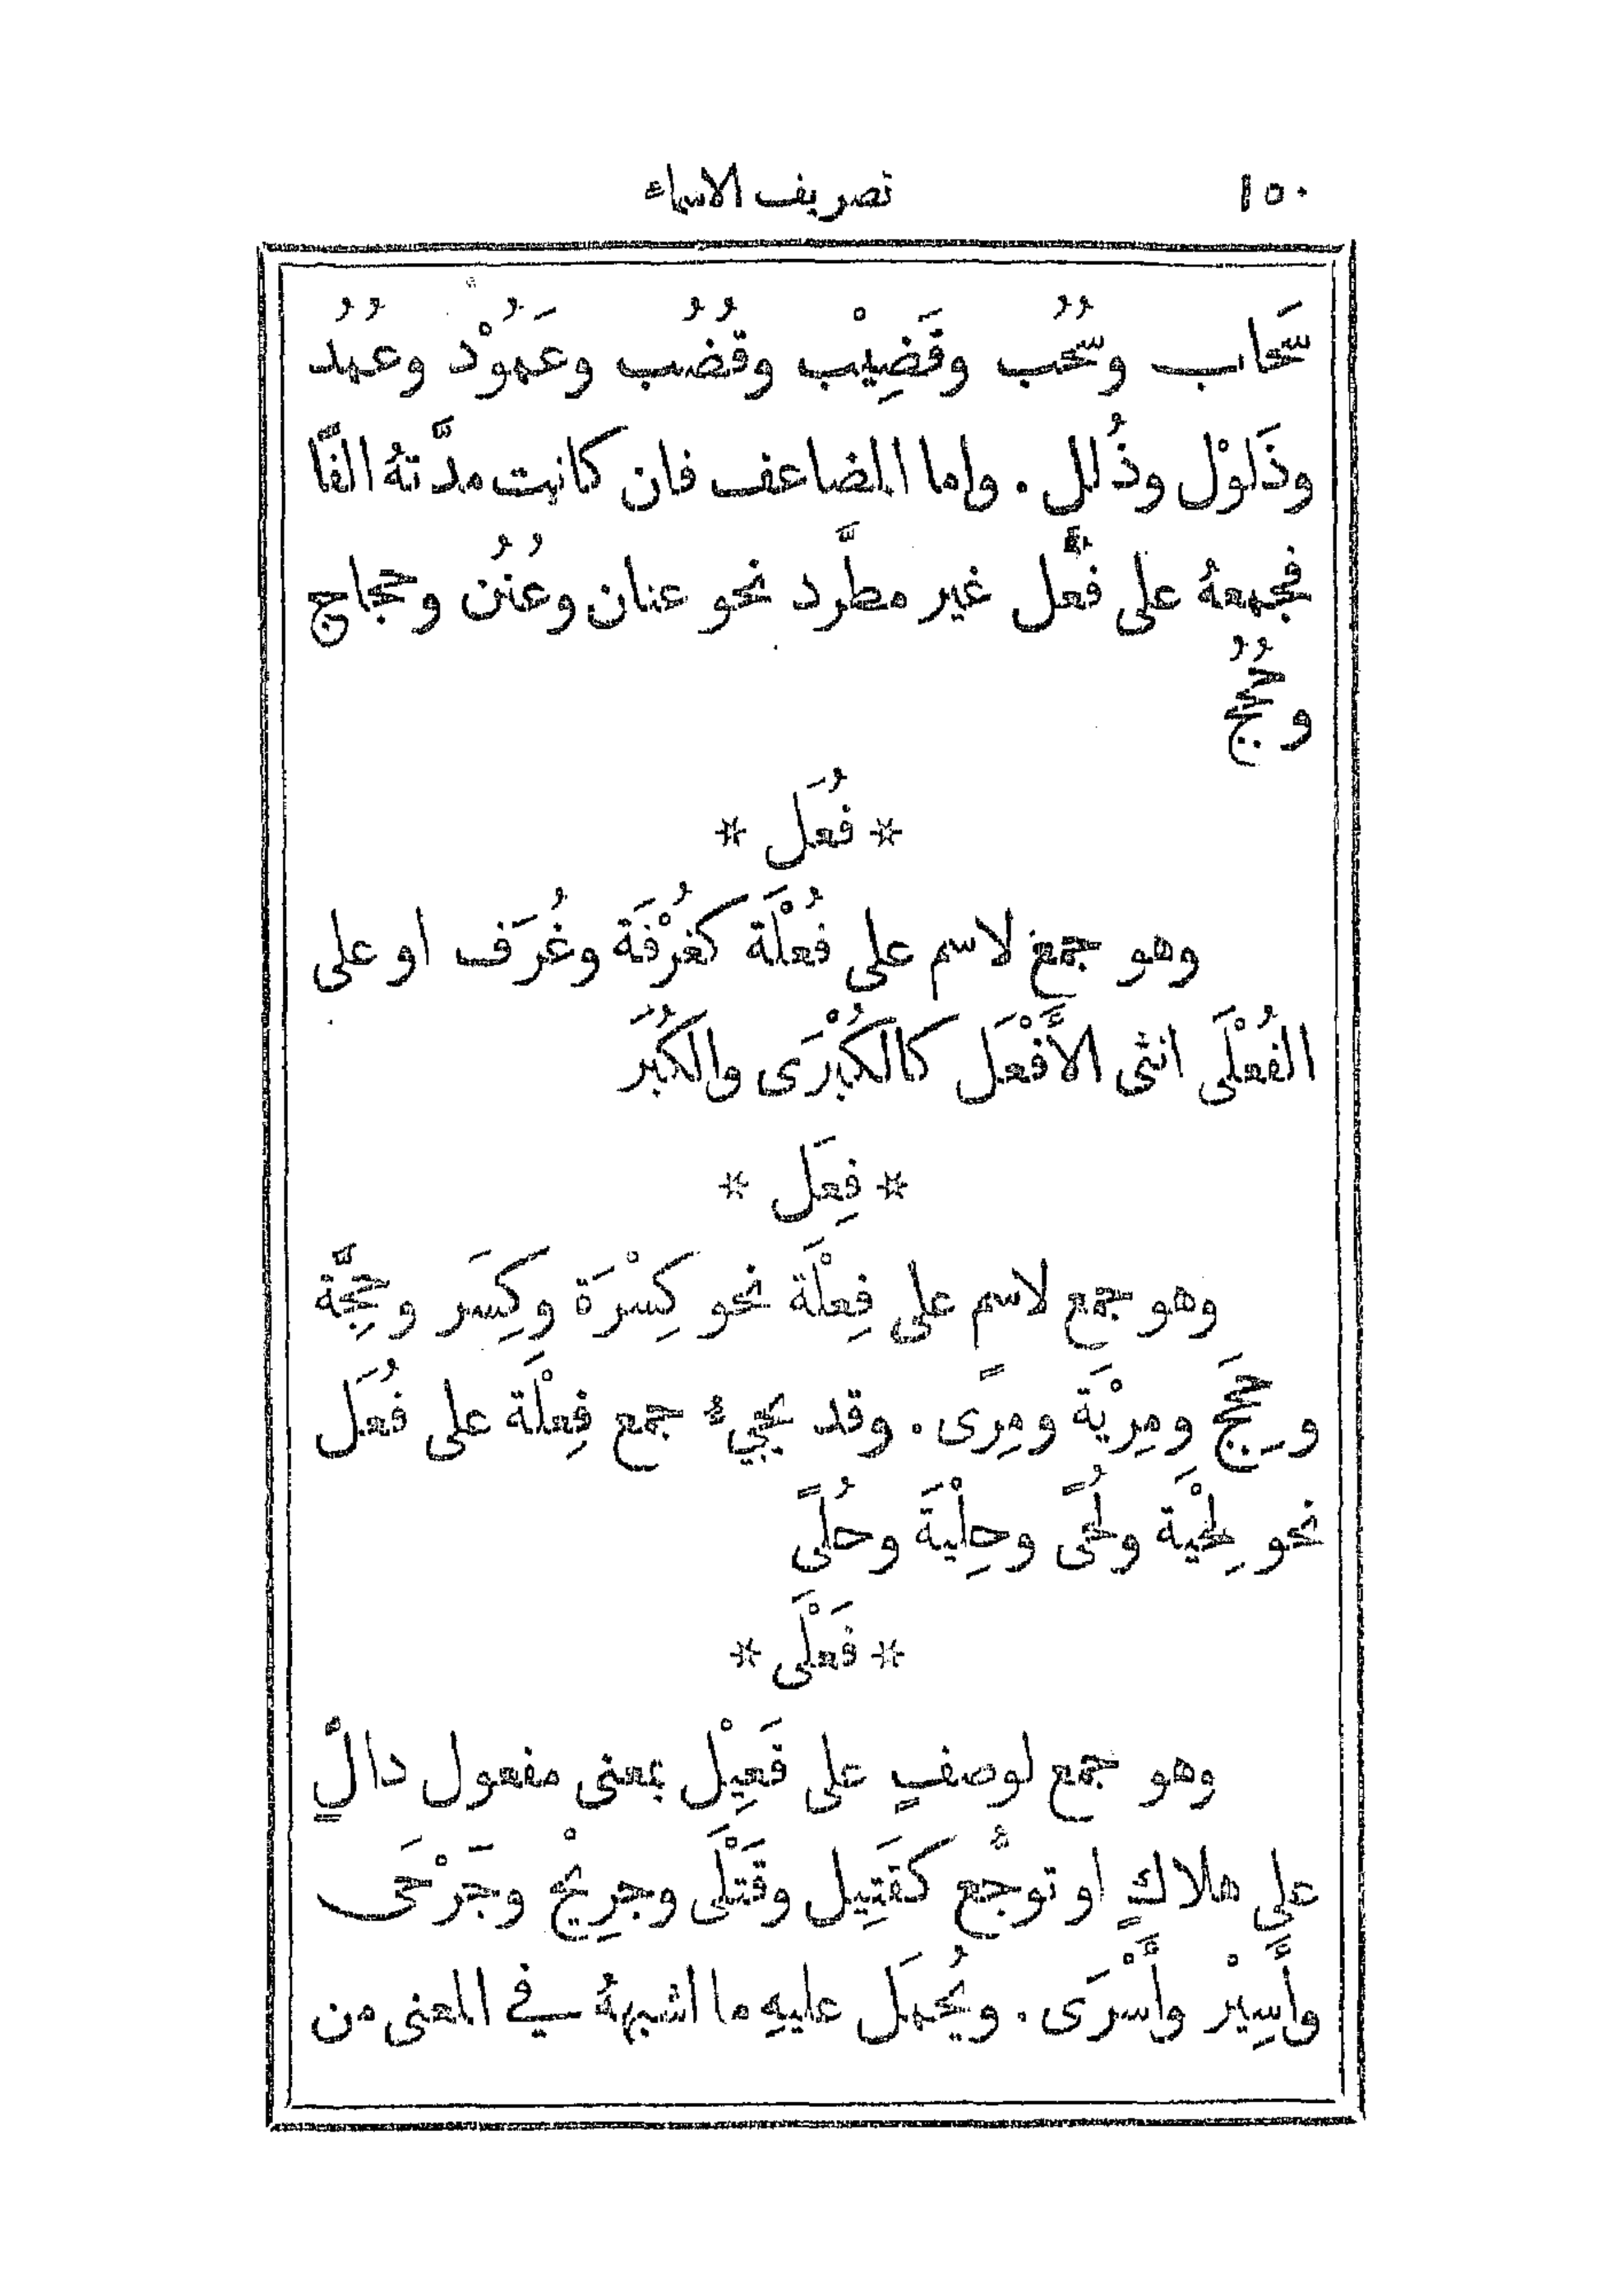 ١٥٠ تصريف الاسماء
سَحَاب وسُحُب وقَضِيْب وقُضُب وعَمُوْد وعُمُد
وذَلوْل وذُلل . واما المضاعف فان كانت مدَّتهُ الفًا
فجمعهُ على فُعُل غير مطَّرد نحو عنان وعُنُن وحجاج
وحُجُج
* فُعَل *
وهو جمع لاسم على فُعْلَة كغُرْفَة وغُرَف او على
الفُعْلَى انثى الأَفْعَل كالكُبْرَى والكُبَر
* فِعَل *
وهو جمع لاسم على فِعْلَة نحو كِسْرَة وكِسَر وحِجَّة
وحِجَج ومِرْيَة ومِرًى . وقد يجيءُ جمع فِعْلَة على فُعَل
نحو لِحْيَة ولُحًى وحِلْيَة وحُلًى
* فَعْلَى *
وهو جمع لوصفٍ على فَعِيْل بمعنى مفعول دالٍّ
على هلاكٍ او توجُّع كقَتِيل وقَتْلَى وجرِيْح وجَرْحَى
وأَسِيْر وأَسْرَى . ويُحمَل عليهِ ما اشبههُ في المعنى من